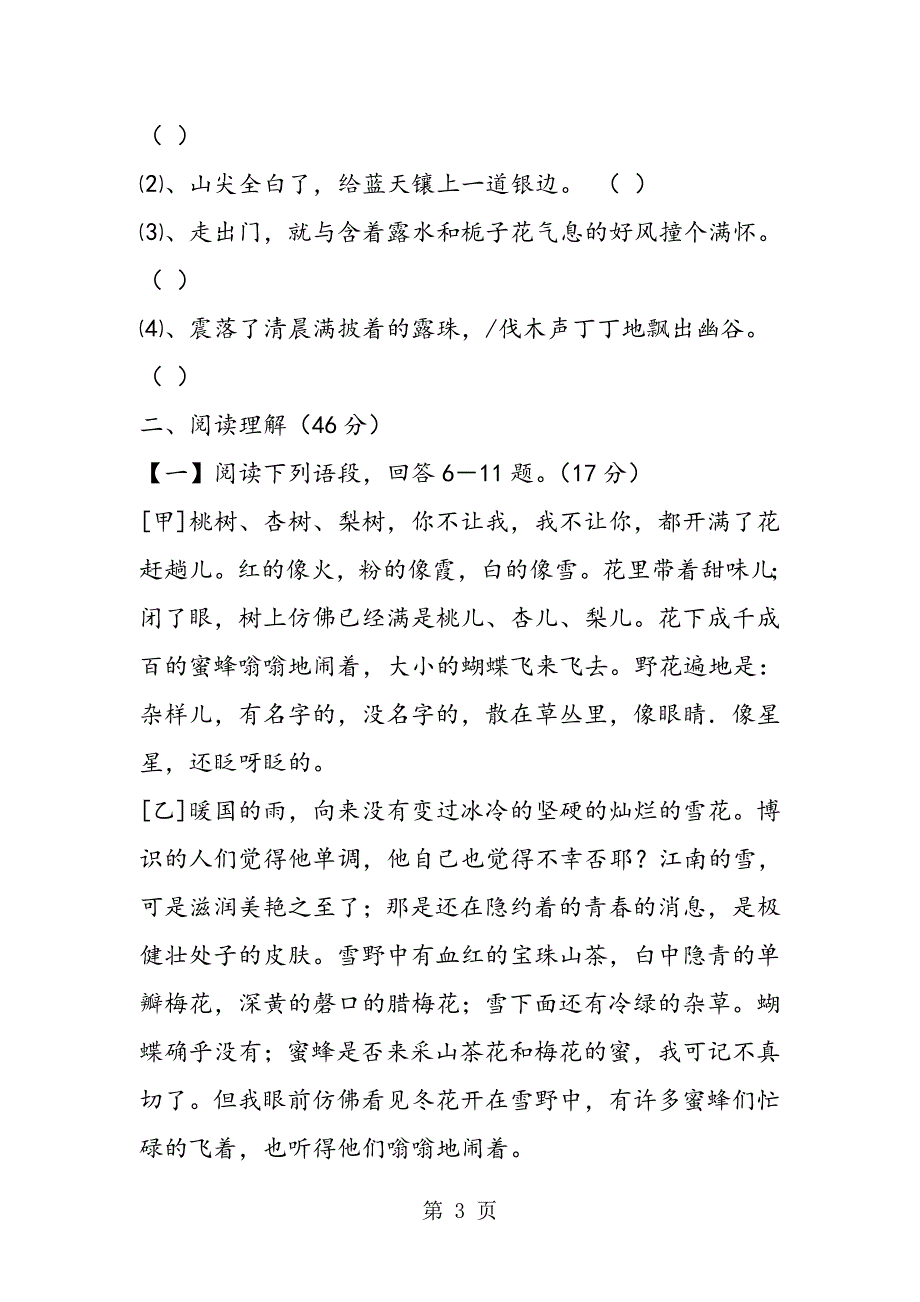 （ ）
⑵、山尖全白了，给蓝天镶上一道银边。 （ ）
⑶、走出门，就与含着露水和栀子花气息的好风撞个满怀。
（ ）
⑷、震落了清晨满披着的露珠，/伐木声丁丁地飘出幽谷。
（ ）
二、阅读理解（46分）
【一】阅读下列语段，回答6－11题。（17分）
[甲]桃树、杏树、梨树，你不让我，我不让你，都开满了花
赶趟儿。红的像火，粉的像霞，白的像雪。花里带着甜味儿；
闭了眼，树上仿佛已经满是桃儿、杏儿、梨儿。花下成千成
百的蜜蜂嗡嗡地闹着，大小的蝴蝶飞来飞去。野花遍地是：
杂样儿，有名字的，没名字的，散在草丛里，像眼睛．像星
星，还眨呀眨的。
[乙]暖国的雨，向来没有变过冰冷的坚硬的灿烂的雪花。博
识的人们觉得他单调，他自己也觉得不幸否耶？江南的雪，
可是滋润美艳之至了；那是还在隐约着的青春的消息，是极
健壮处子的皮肤。雪野中有血红的宝珠山茶，白中隐青的单
瓣梅花，深黄的磬口的腊梅花；雪下面还有冷绿的杂草。蝴
蝶确乎没有；蜜蜂是否来采山茶花和梅花的蜜，我可记不真
切了。但我眼前仿佛看见冬花开在雪野中，有许多蜜蜂们忙
碌的飞着，也听得他们嗡嗡地闹着。
第 3 页